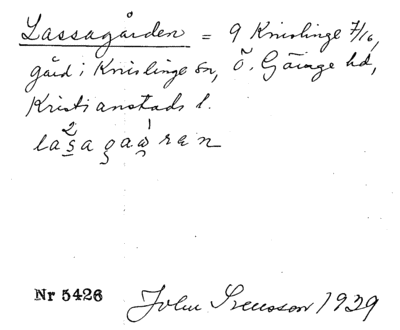 Lassagården = 9 Knislinge 7/16,
gård i Knislinge sn, Ö. Göinge hd,
Kristianstads l.
lasagaaren
Nr 5426 John Svensson 1939